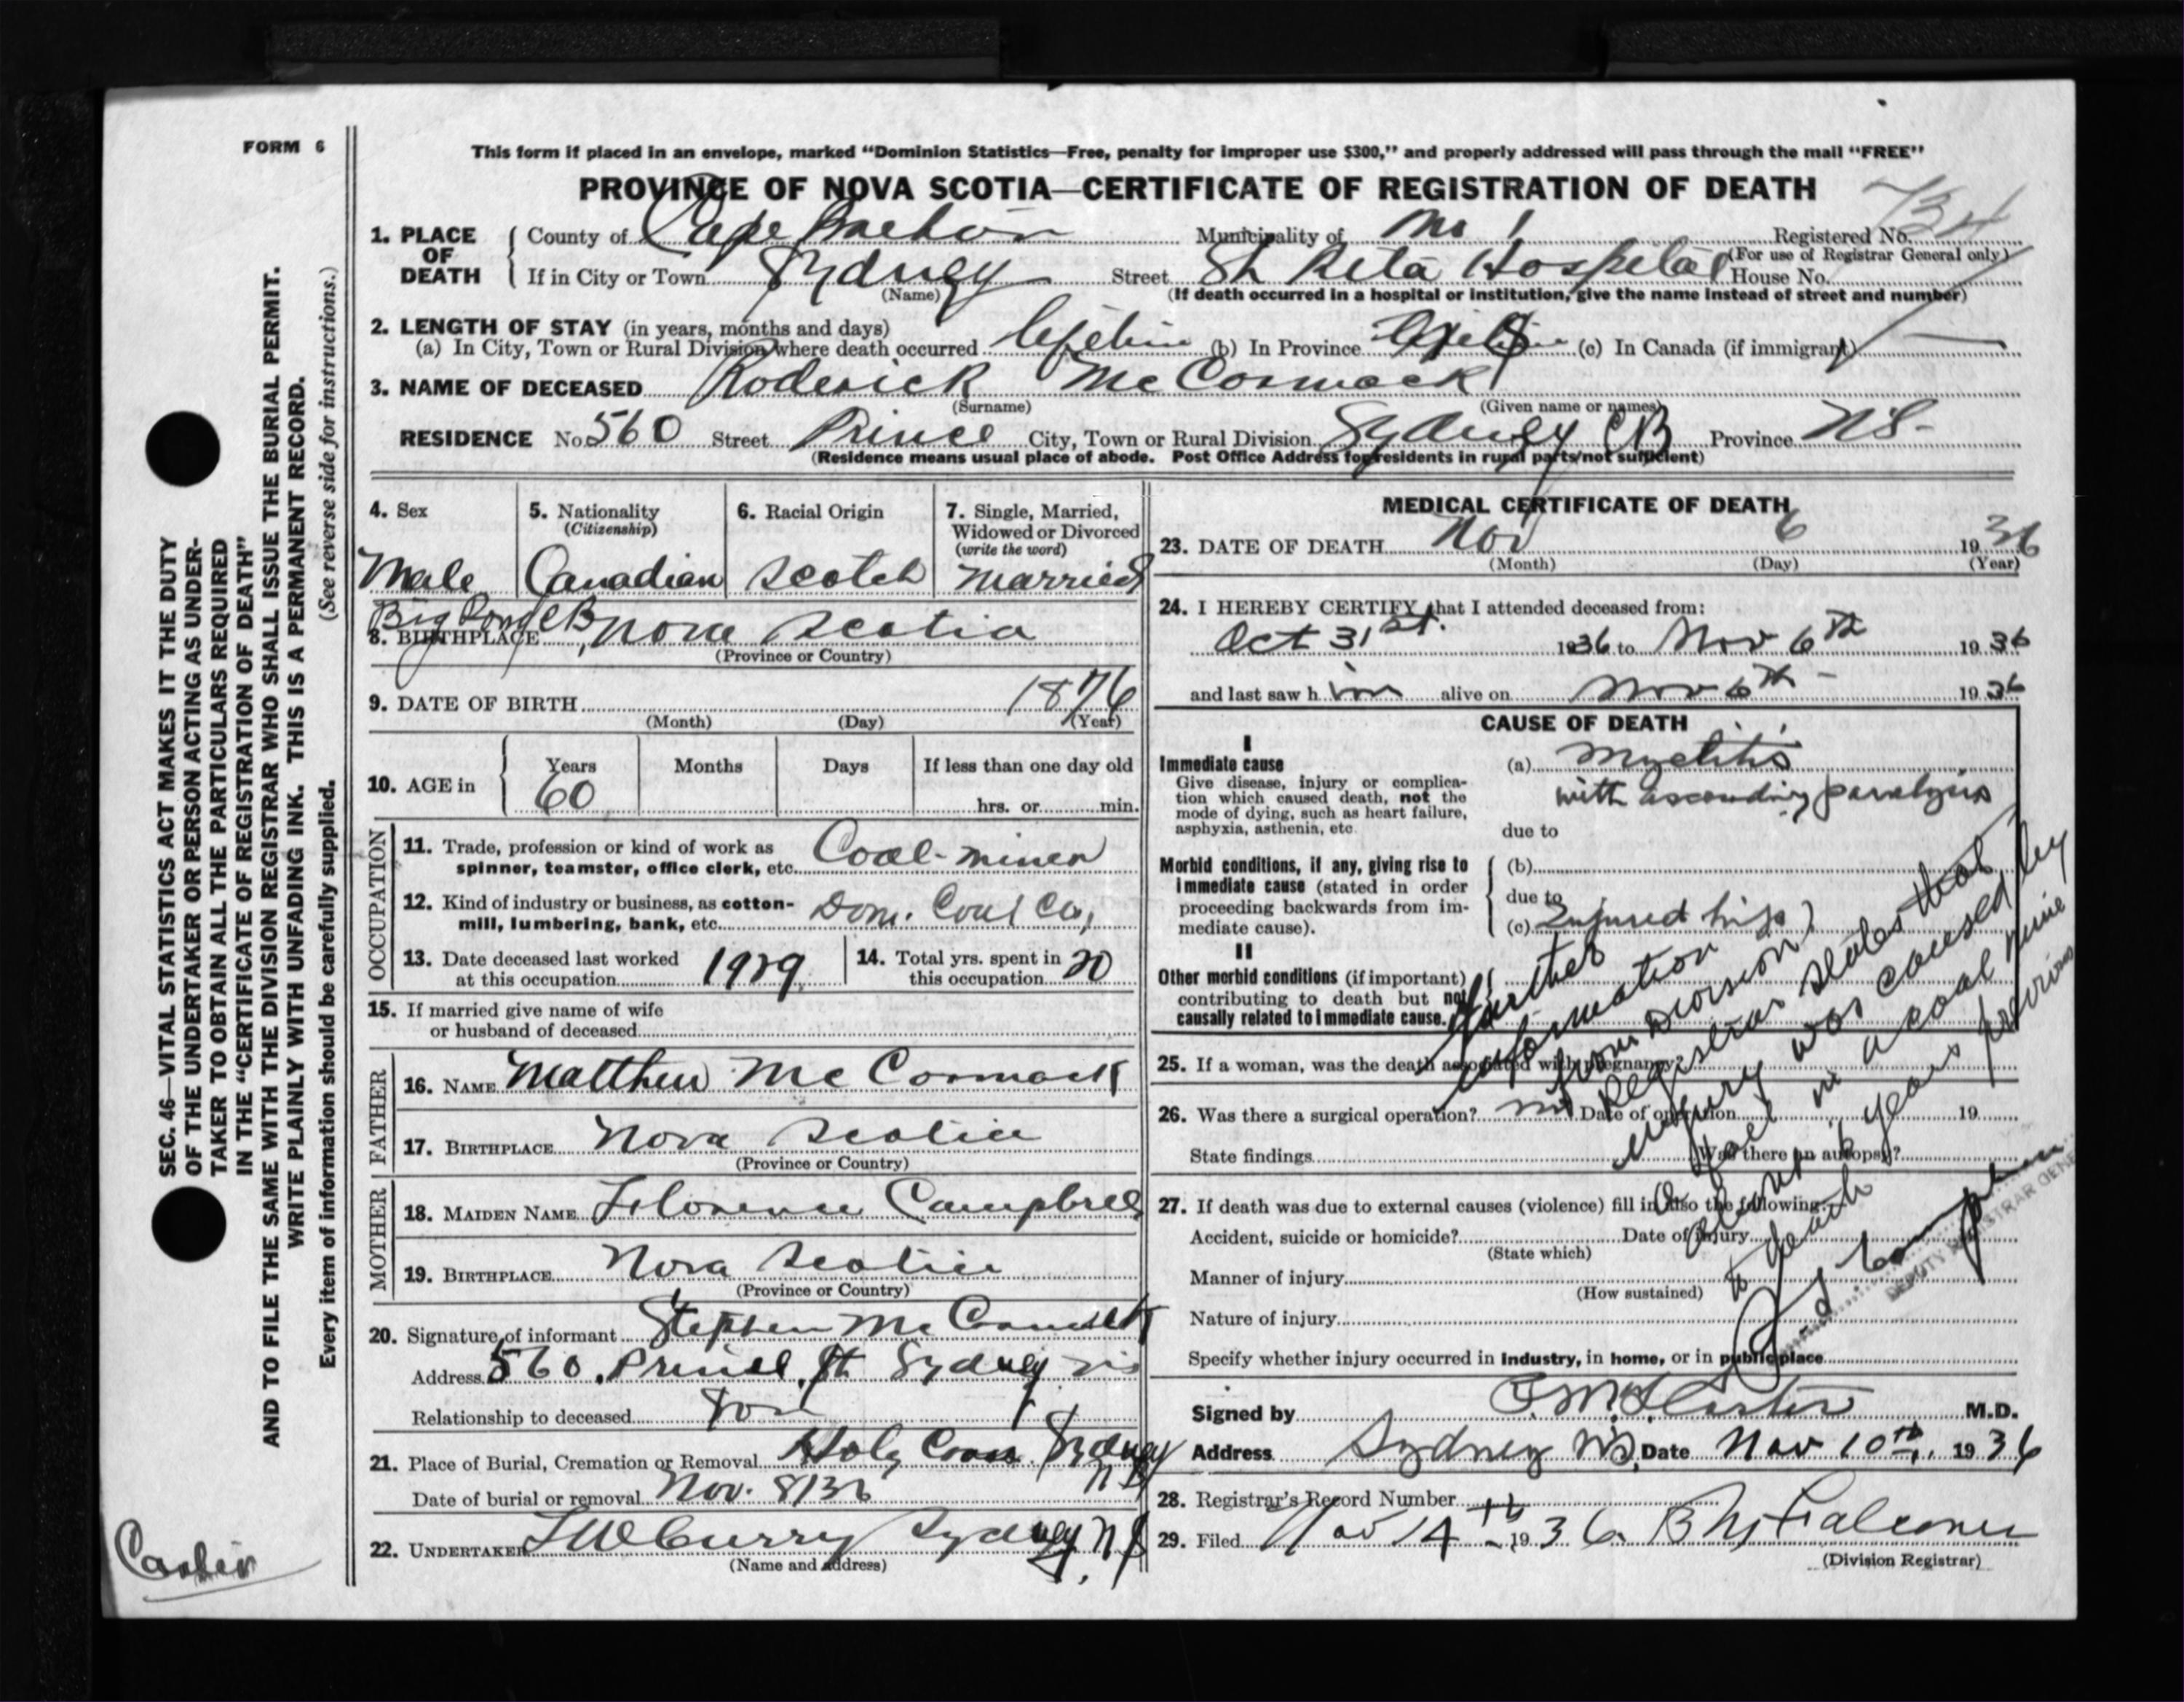 FORM 6
This form if placed in an envelope, marked “Dominion Statistics—Free, penalty for improper use $300,” and properly addressed will pass through the mail “FREE”
PROVINCE OF NOVA SCOTIA—CERTIFICATE OF REGISTRATION OF DEATH
1. PLACE OF DEATH { County of Cape Breton Municipality of No 1 Registered No.
(For use of Registrar General only)
If in City or Town Sydney Street St Rita Hospital House No.
(Name) (If death occurred in a hospital or institution, give the name instead of street and number)
2. LENGTH OF STAY (in years, months and days)
(a) In City, Town or Rural Division where death occurred Lifetime (b) In Province (c) In Canada (if immigrant) —
3. NAME OF DECEASED Roderick Mc Cormack
(Surname) (Given name or names)
RESIDENCE No. 560 Street Prince City, Town or Rural Division Sydney CB Province NS-
(Residence means usual place of abode. Post Office Address for residents in rural parts not sufficient)
4. Sex Male
5. Nationality (Citizenship) Canadian
6. Racial Origin Scotch
7. Single, Married, Widowed or Divorced (write the word) Married
Big Pond CB,
8. BIRTHPLACE Nova Scotia
(Province or Country)
9. DATE OF BIRTH 1876
(Month) (Day) (Year)
10. AGE in { Years Months Days If less than one day old
60 hrs. or min.
OCCUPATION
11. Trade, profession or kind of work as Coal-miner
spinner, teamster, office clerk, etc.
12. Kind of industry or business, as cotton- Dom. Coal Co,
mill, lumbering, bank, etc.
13. Date deceased last worked at this occupation 1929
14. Total yrs. spent in this occupation 20
15. If married give name of wife
or husband of deceased
FATHER
16. NAME Matthew Mc Cormack
17. BIRTHPLACE Nova Scotia
(Province or Country)
MOTHER
18. MAIDEN NAME Florence Campbell
19. BIRTHPLACE Nova Scotia
(Province or Country)
20. Signature of informant Stephen Mc Cormack
Address 560 Prince St Sydney NS
Relationship to deceased Son
21. Place of Burial, Cremation or Removal Holy Cross Sydney
Date of burial or removal Nov. 8/36
22. UNDERTAKER Curry Sydney N S
(Name and address)
MEDICAL CERTIFICATE OF DEATH
23. DATE OF DEATH Nov 6 1936
(Month) (Day) (Year)
24. I HEREBY CERTIFY that I attended deceased from:
Oct 31st. 1936 to Nov 6th 1936
and last saw him alive on Nov 6th - 1936
CAUSE OF DEATH
I
Immediate cause (a) Myelitis
with ascending paralysis
Give disease, injury or complica-
tion which caused death, not the
mode of dying, such as heart failure,
asphyxia, asthenia, etc.
due to
Morbid conditions, if any, giving rise to (b)
immediate cause (stated in order due to
proceeding backwards from im- (c) Injured hip
mediate cause).
II
Other morbid conditions (if important)
contributing to death but not
causally related to immediate cause.
Further
information
(from Division)
Registrar states that
injury was caused by
a fall in a coal mine
about years previous
to death
DEPUTY REGISTRAR GENE
25. If a woman, was the death associated with pregnancy?
26. Was there a surgical operation? no Date of operation 19
State findings Was there an autopsy?
27. If death was due to external causes (violence) fill in also the following:
Accident, suicide or homicide? Date of injury
(State which)
Manner of injury
(How sustained)
Nature of injury
Specify whether injury occurred in industry, in home, or in public place
Signed by M.D.
Address Sydney NS. Date Nov 10th 1936
28. Registrar's Record Number
29. Filed Nov 14th 1936. Falconer
(Division Registrar)
SEC. 46—VITAL STATISTICS ACT MAKES IT THE DUTY
OF THE UNDERTAKER OR PERSON ACTING AS UNDER-
TAKER TO OBTAIN ALL THE PARTICULARS REQUIRED
IN THE “CERTIFICATE OF REGISTRATION OF DEATH”
AND TO FILE THE SAME WITH THE DIVISION REGISTRAR WHO SHALL ISSUE THE BURIAL PERMIT.
WRITE PLAINLY WITH UNFADING INK. THIS IS A PERMANENT RECORD.
Every item of information should be carefully supplied. (See reverse side for instructions.)